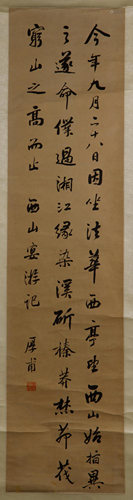 今年九月二十八日因坐法華西亭望西山始指異
之遂命僕過湘江緣染溪斫榛莽焚茅茷
窮山之高而止 西山宴游記
厚甫